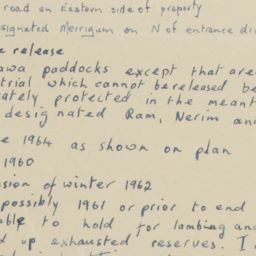 road on Eastern side of property
signated Merrigum on N of entrance dri
e release
awa paddocks except that are
trial which cannot be released be
ately protected in the meant
desig nated Ram, Nerim an
e 1964 as shown on plan
1960
sion of winter 1962
possibly 1961 or prior to end
ble to hold for lambing an
d up exhausted reserves. I